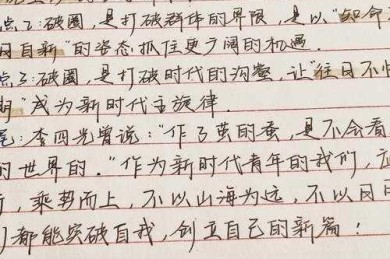 点2:破圈,是打破群体的界限,是以"知命
日自新"的姿态抓住更广阔的机遇.
点3:破圈,是打破时代的沟壑,让"往日不
"成为新时代主旋律.
尾:李四光曾说:"作了茧的蚕,是不会看
的世界的."作为新时代青年的我们,
,乘势而上,不以山海为远,不以日
都能突破自我,创立自己的新篇!